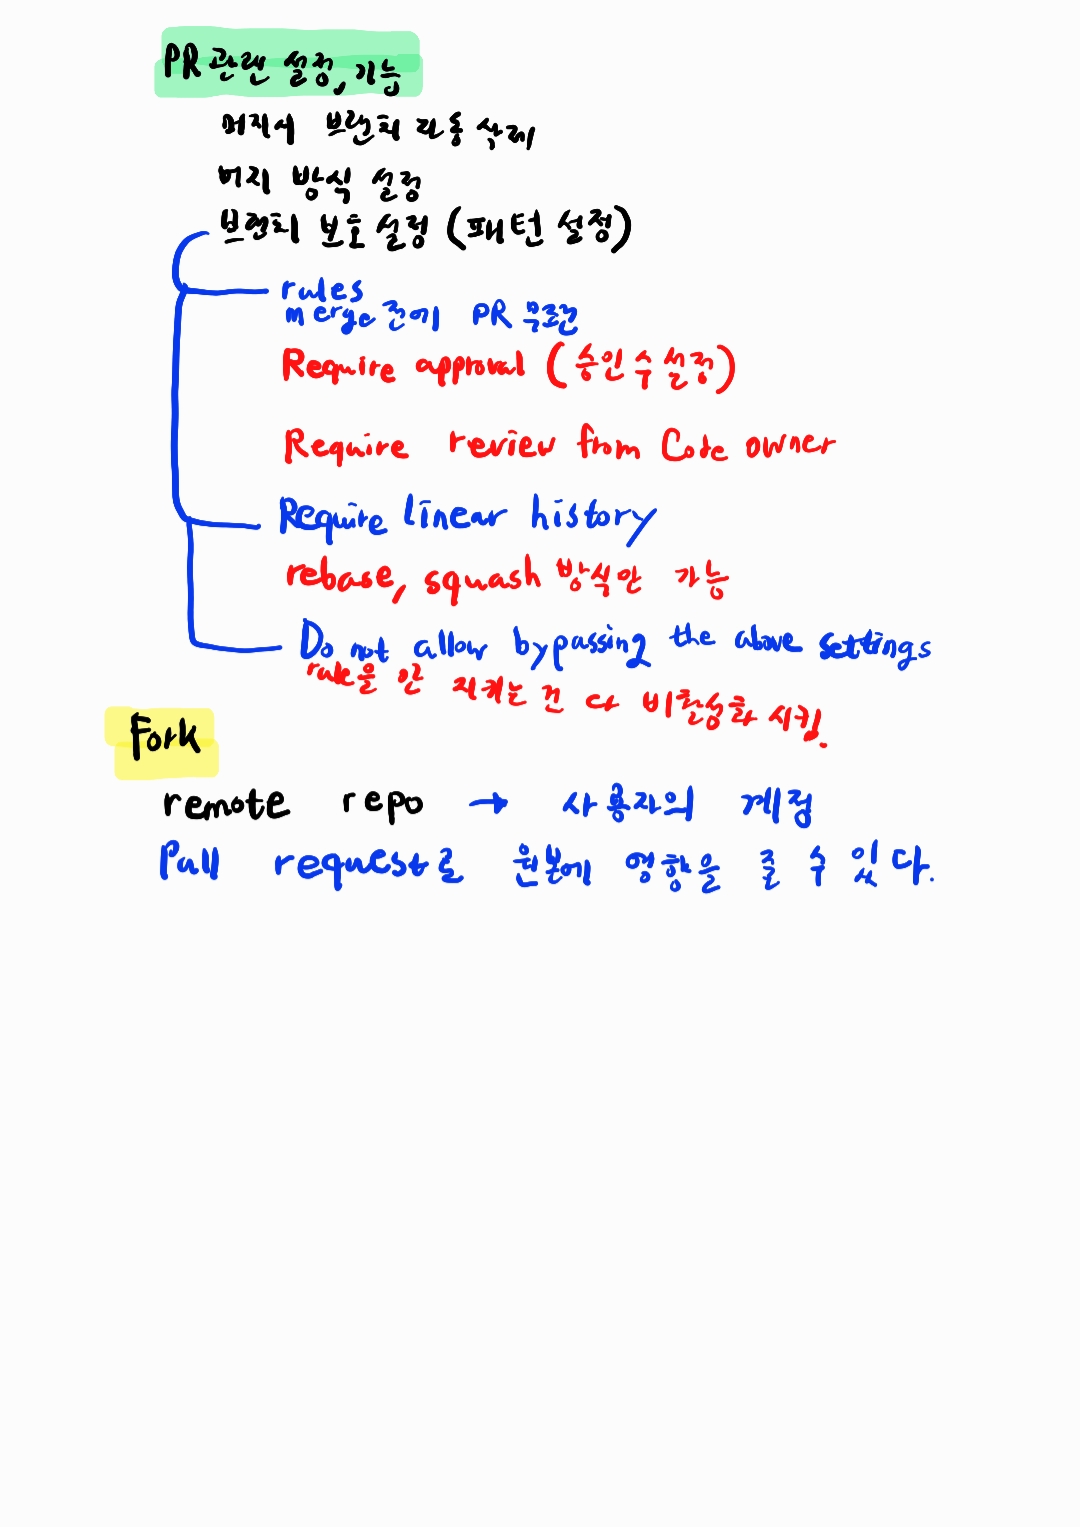 PR 관련 설정, 기능
머지시 브랜치 자동 삭제
머지 방식 설정
브랜치 보호 설정 (패턴 설정)
rules
merge 전에 PR 무조건
Require approval (승인 수 설정)
Require review from Code owner
Require linear history
rebase, squash 방식만 가능
Do not allow bypassing the above settings
rule을 안 지키는 건 다 비활성화 시킴.
Fork
remote repo → 사용자의 계정
Pull request로 원본에 영향을 줄 수 있다.